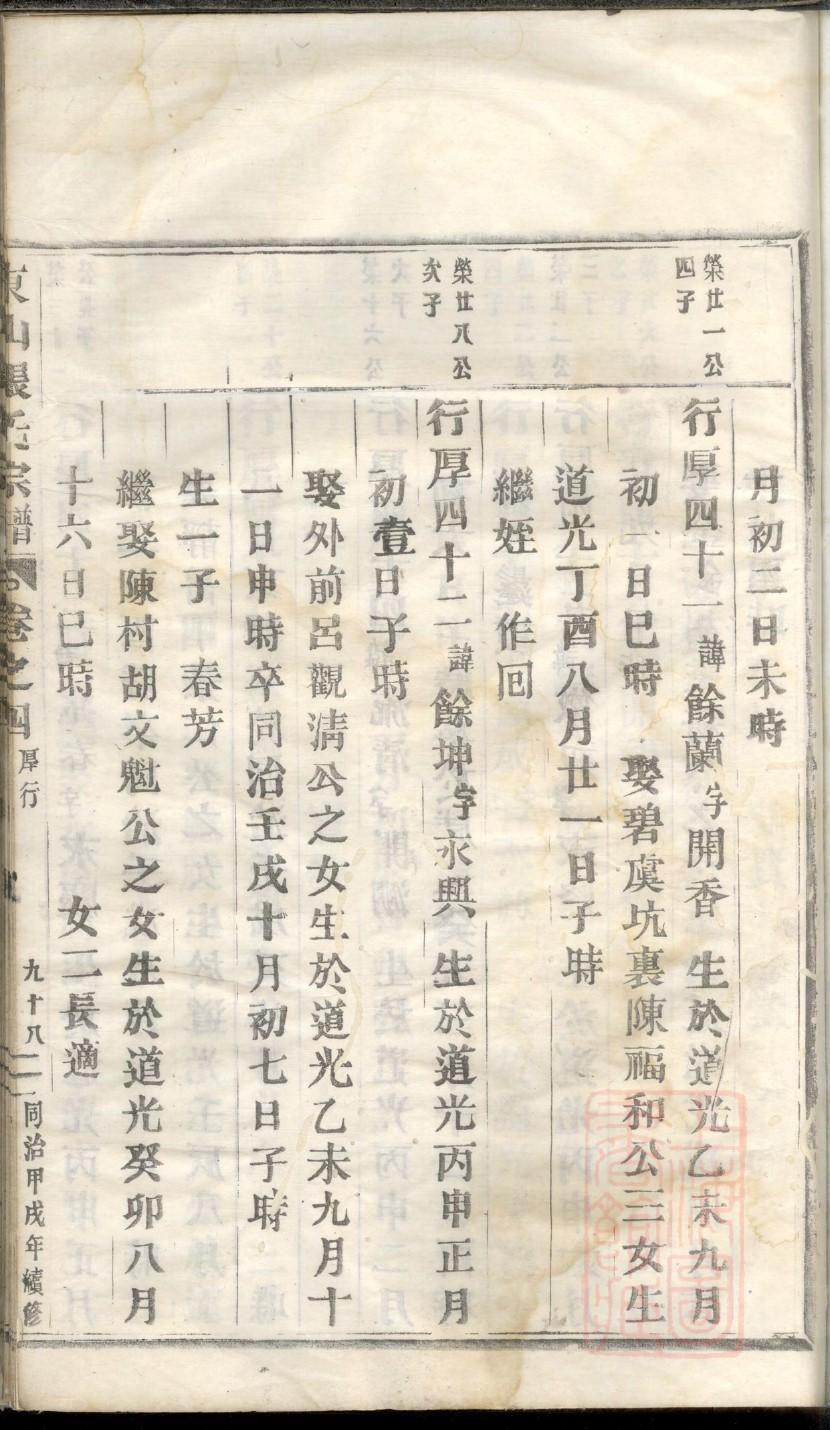 月初二日未時
榮廿一公
四子
行厚四十一諱餘蘭字開香 生於道光乙未九月
初一日巳時 娶碧虞坑裏陳福和公三女生
道光丁酉八月廿一日子時
繼姪 作回
榮廿八公
次子
行厚四十二諱餘坤字永興 生於道光丙申正月
初壹日子時
娶外前呂觀清公之女生於道光乙未九月十
一日申時卒同治壬戌十月初七日子時
生一子 春芳
繼娶陳村胡文魁公之女生於道光癸卯八月
十六日巳時 女二長適
東山張氏宗譜 卷之四 厚行 九十八 同治甲戌年續修